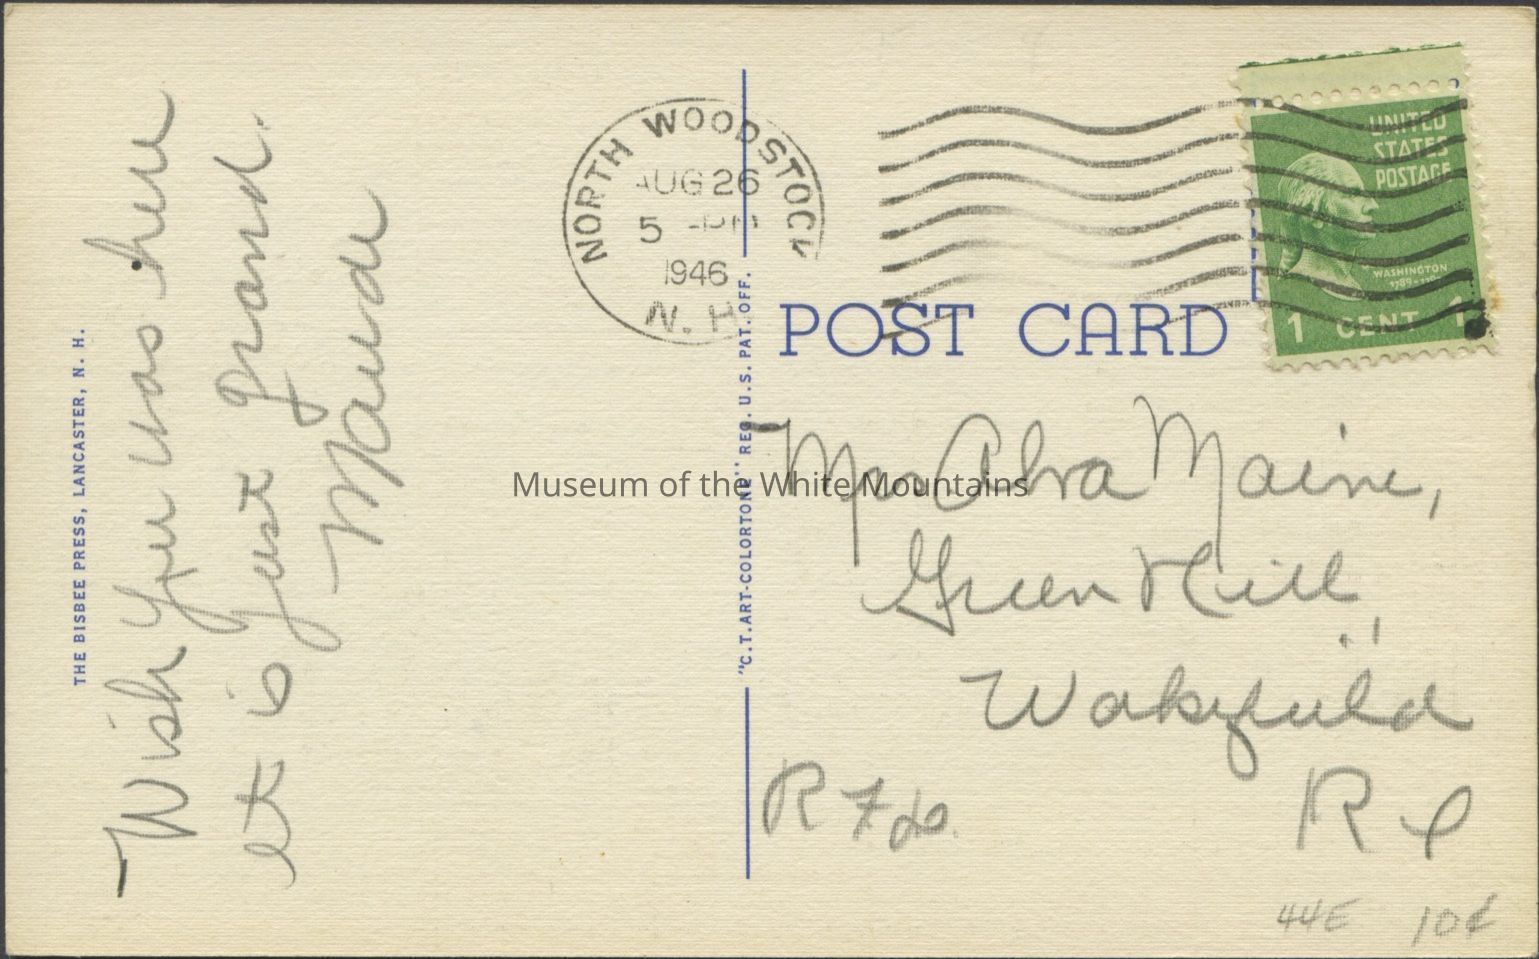 Wish you was here
it is just grand.
Maude
THE BISBEE PRESS, LANCASTER, N. H.
NORTH WOODSTOCK
AUG 26
5 -PM
1946
N. H.
"C.T.ART-COLORTONE" REG. U.S. PAT. OFF.
POST CARD
UNITED
STATES
POSTAGE
WASHINGTON
1 CENT 1
Mrs Alva Maine,
Green Hill
Wakefield
R F D.
R I
44E 10¢
Museum of the White Mountains